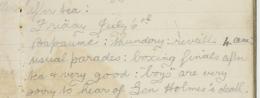 after tea :
Friday July 6th
Bapaume : thundery : reveille 4 am
usual parades : boxing finals after
tea & very good : boys are very
sorry to hear of Gen Holmes's death.